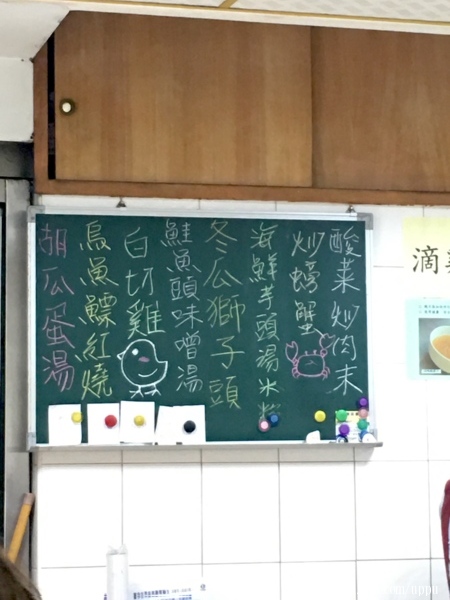 酸菜炒肉末
炒螃蟹
海鮮芋頭湯米粉
冬瓜獅子頭
鮭魚頭味噌湯
白切雞
烏魚鰾紅燒
胡瓜蛋湯
滴